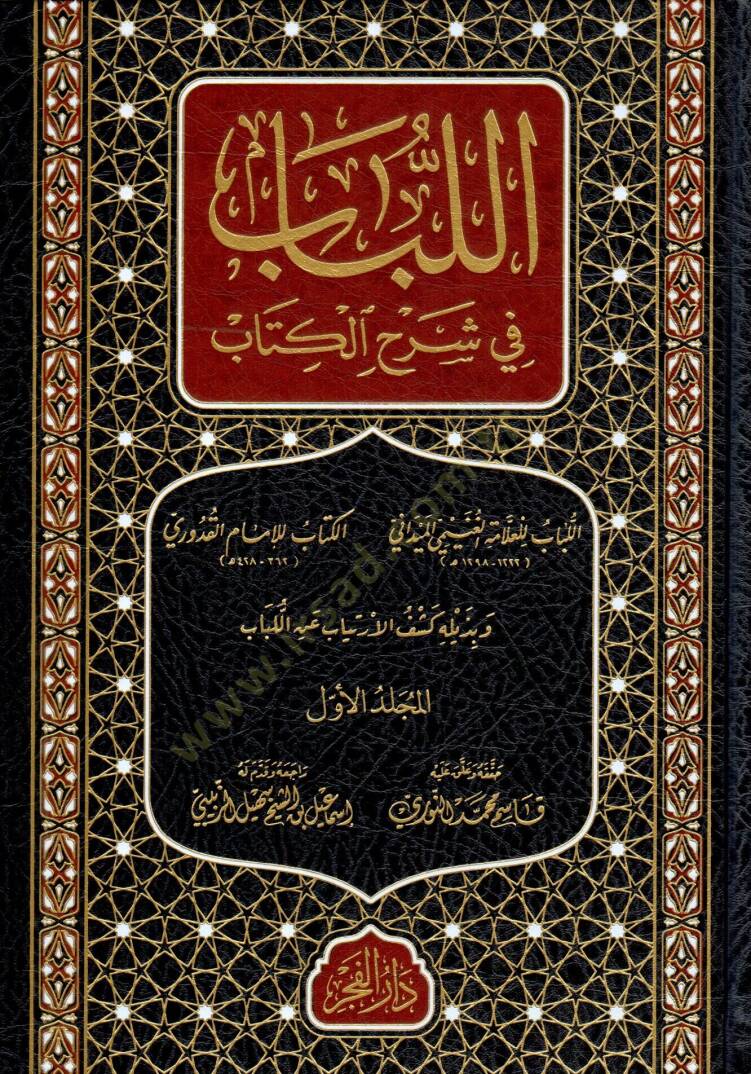 اللُّبَاب
فِي شَرْحِ الْكِتَابْ
اللُّبَابُ لِلْعَلَّامَةِ الْغُنَيْمِيِّ الْمَيْدَانِيِّ
(١٢٢٢ - ١٢٩٨ هـ)
الكِتَابُ لِلإِمَامِ القُدُورِيِّ
(٣٦٢ - ٤٢٨ هـ)
وَبِذَيْلِهِ كَشْفُ الِارْتِيَابِ عَنِ اللُّبَابِ
المُجَلَّدُ الأَوَّل
حَقَّقَهُ وَعَلَّقَ عَلَيْهِ
قَاسِم مُحَمَّد النُّورِي
رَاجَعَهُ وَقَدَّمَ لَهُ
إسماعيل بن الشيخ سهيل الزبيبي
دَارُ الفَجْرِ